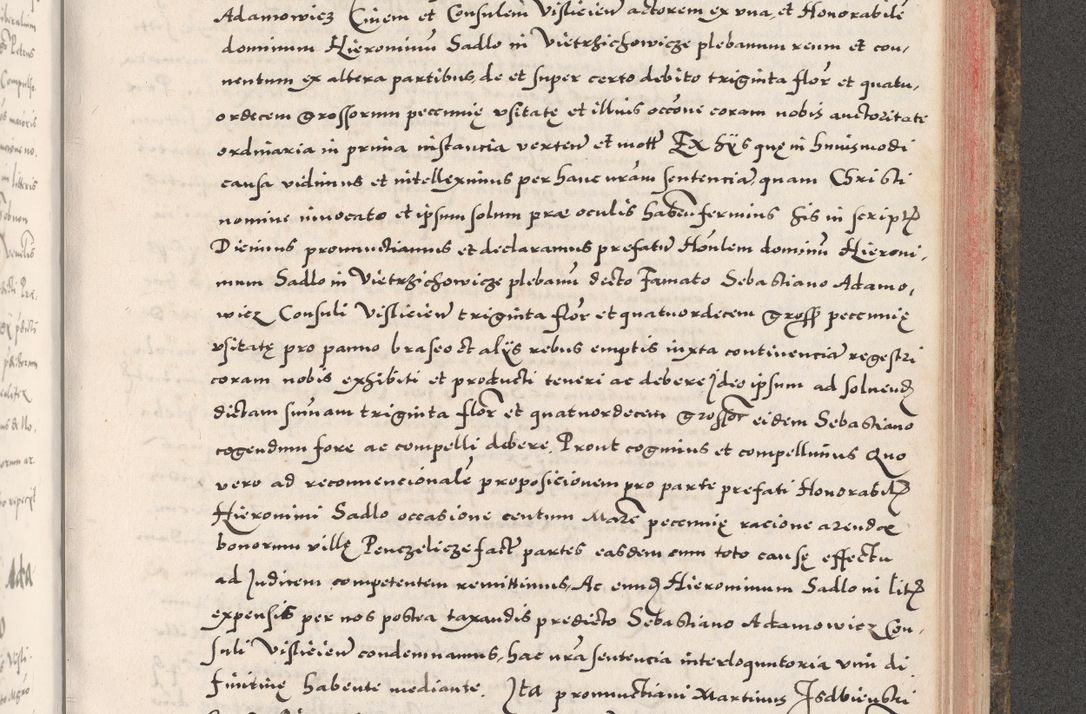 Adamowicz Civem et Consulem Visliciem̄ actorem ex vna, et Honorabilē
dominum Hieronimū Sadlo in Vietrzichowicze plebanum reum et con,
uentum ex altera partibus, de et super certo debito triginta flor̄ et quatu,
ordecem grossorum peccunię vsitatę et illius occōne coram nobis auctoritate
ordinaria in prima instancia verteñ et mott̄ Ex hÿs quę in huiusmodi
causa vidimus et intelleximus per hanc nr̄am sententiā, quam Christi
nomine inuocato et ipsum solum præ oculis habeñ ferimus his in scriptꝭ
Dicimus pronunctiamus et declaramus prefatū Hōnlem dominū Hieroni,
mum Sadlo in Vietrzichowicze plebanū dicto Famato Sebastiano Adamo,
wicz Consuli Visliciem̄ triginta flor̄ et quatuordecem gross̄ peccunię
vsitatę pro panno braseo et alÿs rebus emptis iuxta continenciā regestri
coram nobis exhibiti et producti teneri ac debere Ideo ipsum ad soluendꝭ
dictam sum̄am triginta flor̄ et quatuordecem grossor̄ eidem Sebastiano
cogendum fore ac compelli debere, Prout cogimus et compellimus Quo
vero ad reconuencionalē proposicionem pro parte prefati Honorabilꝭ
Hieronimi Sadlo occasione centum Marc̄ peccunię racione arendæ
bonorum villę Penczelicze fact̄ partes easdem cum toto causę effectu
ad Iudicem competentem remittimus, Ac eundꝭ Hieronimum Sadlo ni litꝭ
expensis per nos postea taxandis predicto Sebastiano Adamowicz Con,
suli Visliciem̄ condemnamus, hac nr̄a sentencia interloquutoria vim di
finitiuę habente mediante. Ita pronunctiaui Martinus Isdbienski